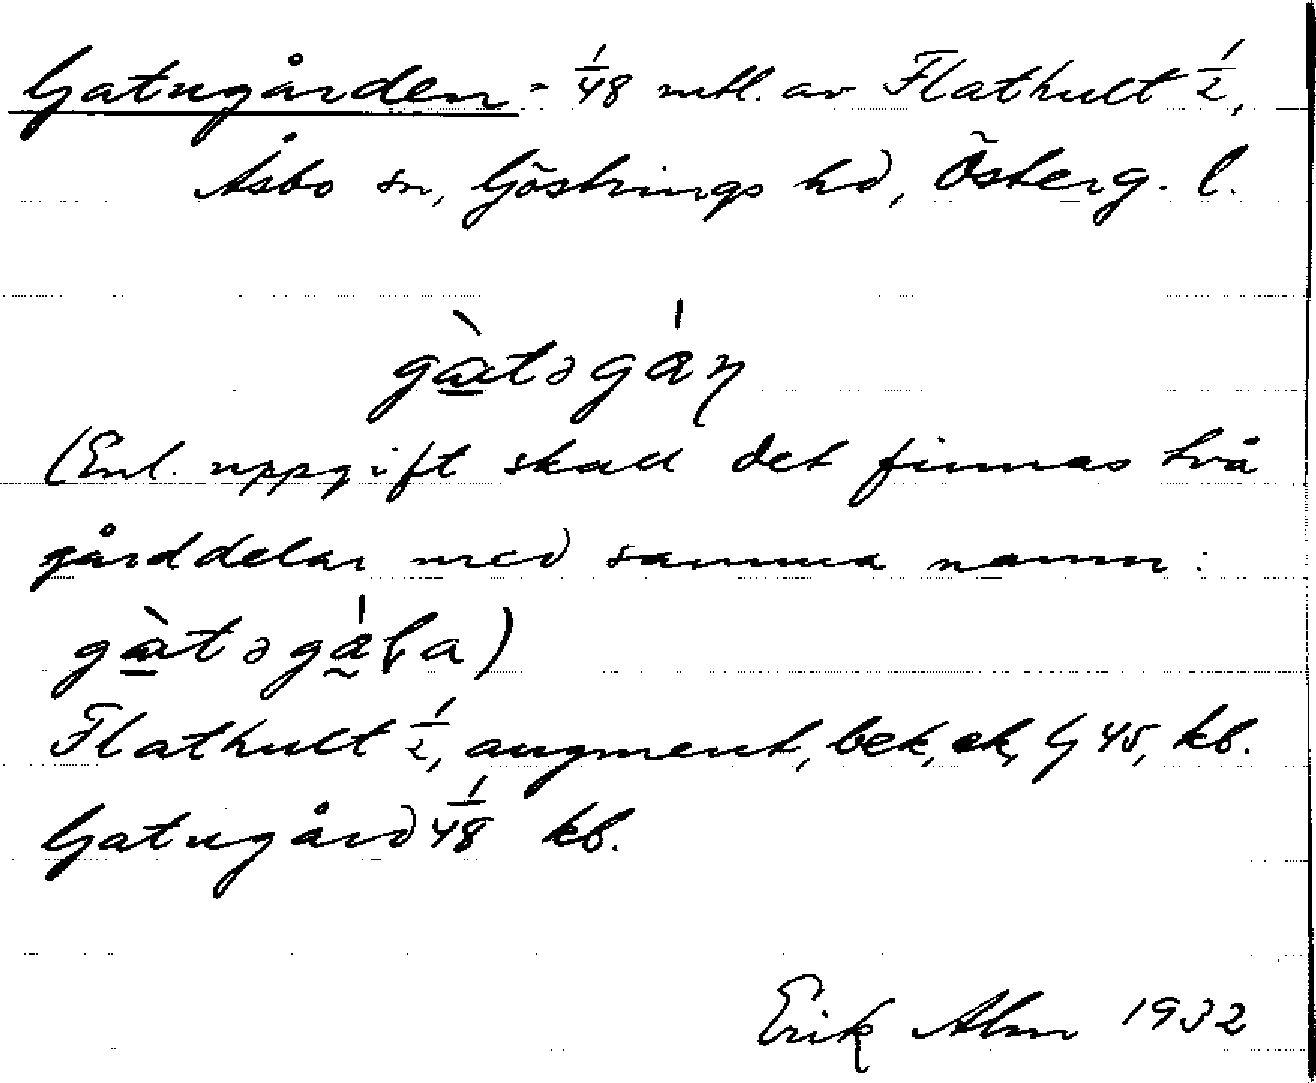 Gatugården - 1/48 mtl. av Flathult 1/2,
Åsbo sn, Göstrings hd, Österg. l.
gàtəgá̍ŋ
(Enl. uppgift skall det finnas två
gårddelar med samma namn:
gàtəgá̍ɽa)
Flathult 1/2, augment, bek, ek, G 45, kb.
Gatugård 1/48 kb.
Erik Alm 1932